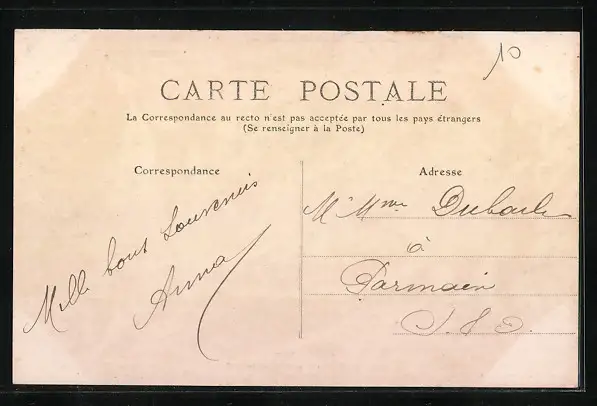 10
CARTE POSTALE
La Correspondance au recto n'est pas acceptée par tous les pays étrangers
(Se renseigner à la Poste)
Correspondance
Adresse
Mille bons Souvenirs
Anna
M Mme
à
Parmain
S. & O.